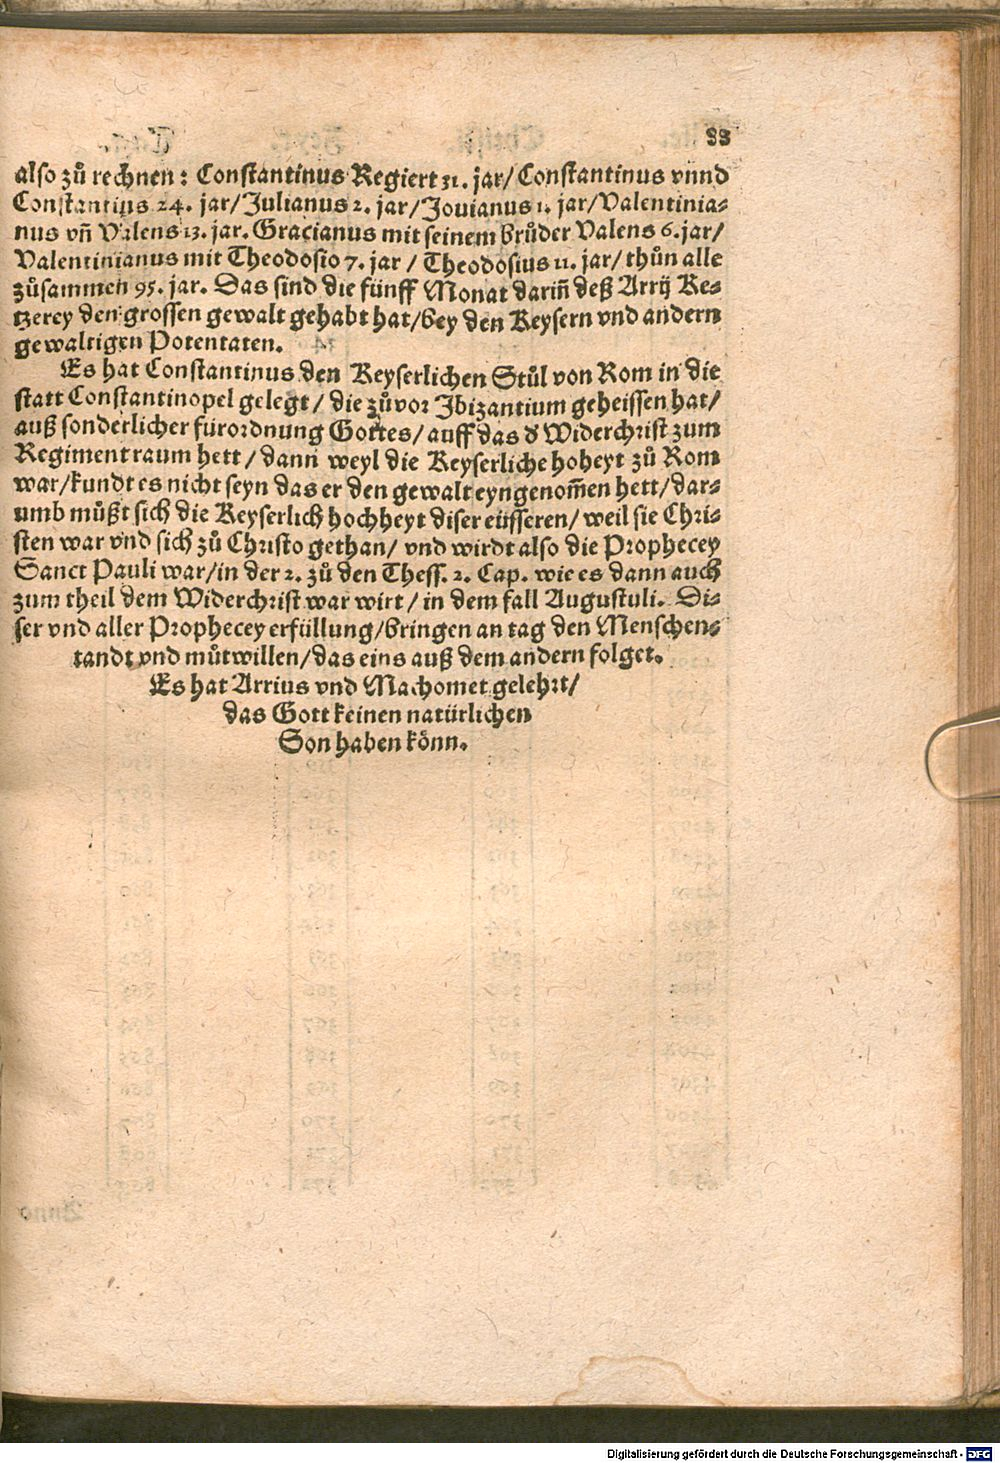 88
also zů rechnen: Constantinus Regiert 31. jar/ Constantinus vnnd
Constantius 24. jar/ Julianus 2. jar/ Jouianus 1. jar/ Valentinia⸗
nus vñ Valens 13. jar. Gracianus mit seinem brůder Valens 6. jar/
Valentinianus mit Theodosio 7. jar / Theodosius 11. jar/ thůn alle
zůsammen 95. jar. Das sind die fünff Monat dariñ deß Arrij Ke⸗
tzerey den grossen gewalt gehabt hat/ bey den Keysern vnd andern
gewaltigen Potentaten.
Es hat Constantinus den Keyserlichen Stůl von Rom in die
statt Constantinopel gelegt/ die zůvor Jbizantium geheissen hat/
auß sonderlicher fürordnung Gottes/ auff das d Widerchrist zum
Regiment raum hett/ dann weyl die Keyserliche hoheyt zů Rom
war/ kundt es nicht seyn das er den gewalt eyngenom̃en hett/ dar⸗
umb můßt sich die Keyserlich hochheyt diser eüsseren/ weil sie Chri⸗
sten war vnd sich zů Christo gethan/ vnd wirdt also die Prophecey
Sanct Pauli war/ in der 2. zů den Thess. 2. Cap. wie es dann auch
zum theil dem Widerchrist war wirt/ in dem fall Augustuli. Di⸗
ser vnd aller Prophecey erfüllung/ bringen an tag den Menschen⸗
tandt vnd můtwillen/ das eins auß dem andern folget.
Es hat Arrius vnd Machomet gelehrt/
das Gott keinen natürlichen
Son haben könn.
Digitalisierung gefördert durch die Deutsche Forschungsgemeinschaft - DFG